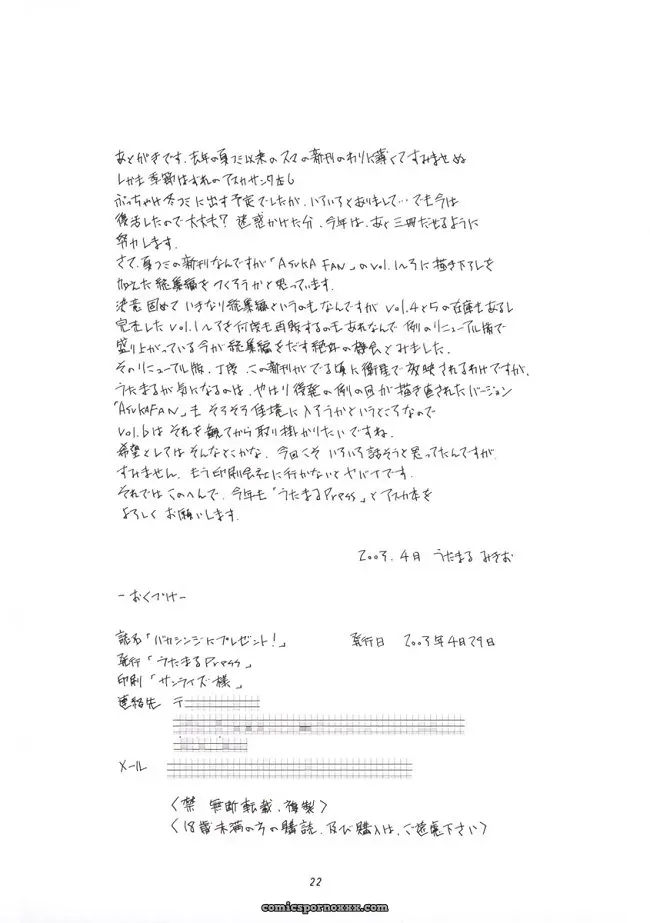 あとがきです。去年の夏コミ以来のアスカの新刊のわりに薄くてすみませぬ
しかも季節はずれのアスカサンタ本し
ぶっちゃけ冬コミに出す予定でしたが、いろいろとありまして…でも今は
復活したので大丈夫? 迷惑かけた分、今年は、あと三冊だせるように
努力します。
さて、夏コミの新刊なんですが「ASUKA FAN」のVol.1~3に描き下ろしを
加えた総集編をつくろうかと思っています。
決意固めていきなり総集編というのもなんですが vol.4と5の在庫もあるし
完売したvol.1~3を何度も再販するのもあれなんで 例のリニューアル版で
盛り上がっている今が総集編をだす絶好の機会とみました。
そのリニューアル版、丁度、この新刊がでる頃に衛星で放映されるわけですが、
うたまるが気になるのは、やはり後発の例の回が描き直されたバージョン
「ASUKAFAN」も そろそろ佳境に入ろうかというところなので
vol.6は それを観てから取り掛かりたいですね。
希望としてはそんなとこかな、今回こそいろいろ話そうと思ってたんですが、
すみません、もう印刷会社に行かないとヤバイです。
それではこのへんで、今年も「うたまるPress」とアスカ本を
よろしくお願いします。
2003. 4月 うたまる みきお
-おくづけ-
誌名「バカシンジにプレゼント!」 発行日 2003年4月29日
発行「うたまるPress」
印刷「サンライズ様」
連絡先 〒
メール
〈禁 無断転載、複製〉
〈18歳未満の方の購読、及び購入は、ご遠慮下さい〉
22
comicspornoxxx.com